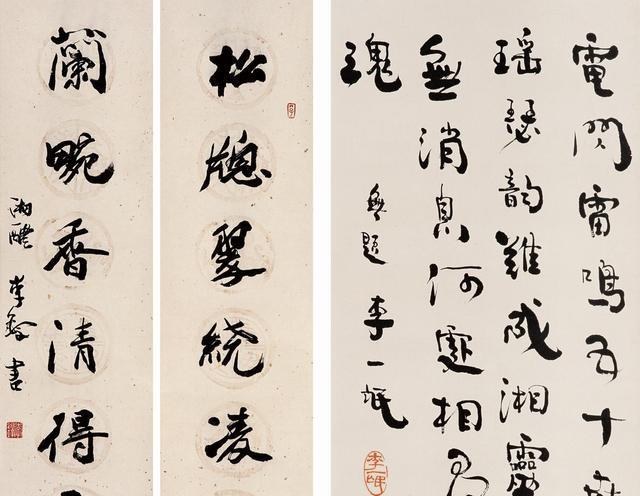 電閃雷鳴五十
瑤瑟韻難成湘靈
無消息何處相
魂
無題 李一氓
李一氓
松牕翠繞凌
蘭畹香清得
湘醴 李鐸 書